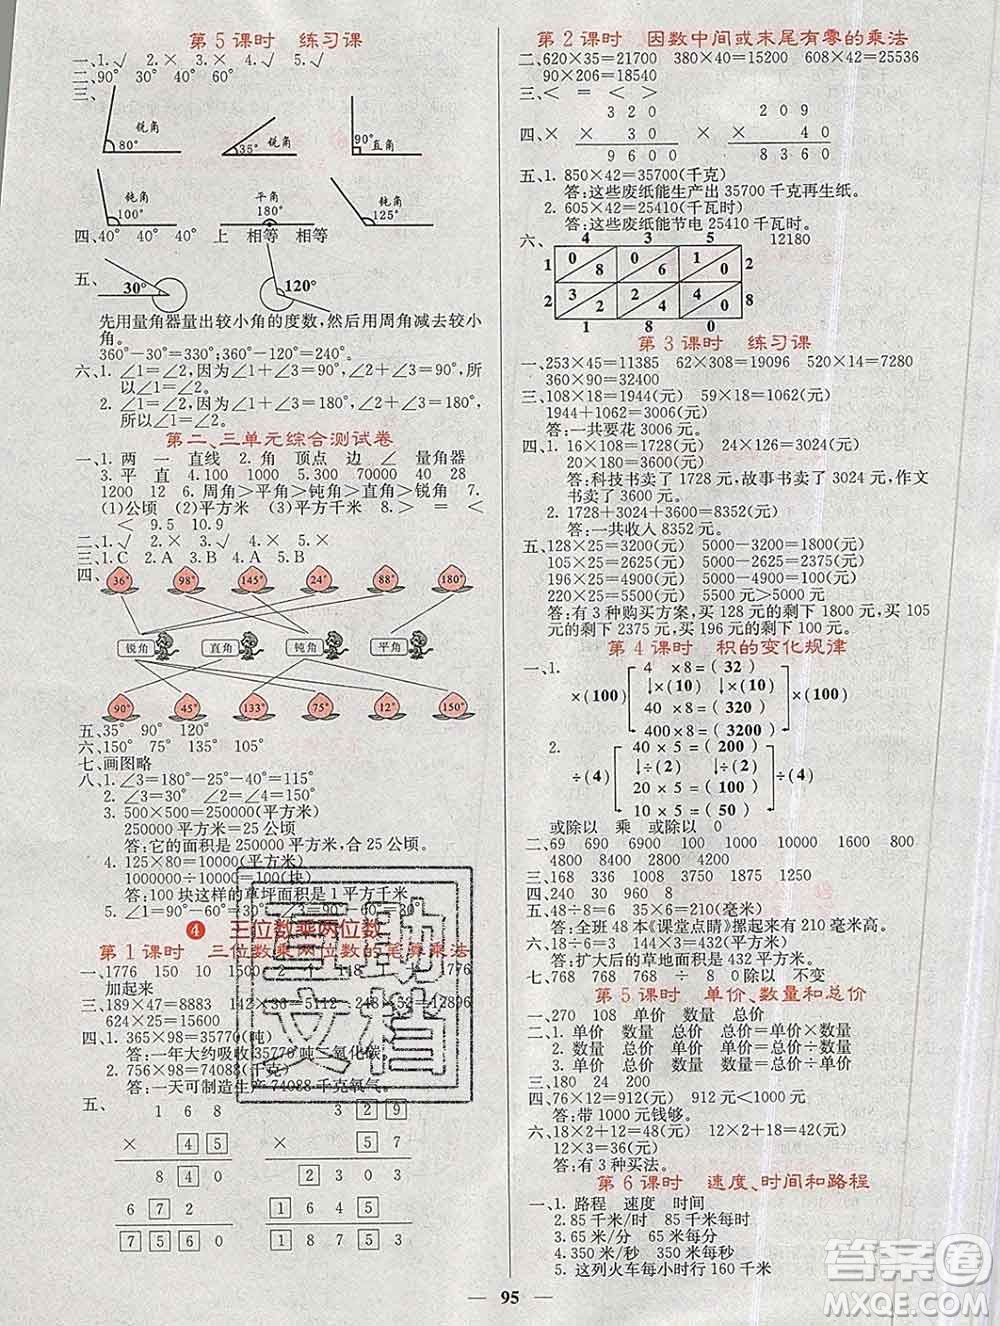 第5课时 练习课
一、1.√ 2.× 3.× 4.√ 5.√
二、90° 30° 40° 60°
三、
锐角 80°
35° 锐角
90° 直角
钝角 100°
平角 180°
钝角 125°
四、40° 40° 40° 上 相等 相等
五、
30° 120°
先用量角器量出较小角的度数,然后用周角减去较小
角。
360°-30°=330°;360°-120°=240°。
六、1.∠1=∠2,因为∠1+∠3=90°,∠2+∠3=90°,
所以∠1=∠2。
2.∠1=∠2,因为∠1+∠3=180°,∠2+∠3=180°,
所以∠1=∠2。
第二、三单元综合测试卷
一、1.两 一 直线 2.角 顶点 边 ∠ 量角器
3.平 直 4.100 1000 5.300 70000 40 28
1200 12 6.周角>平角>钝角>直角>锐角 7.
(1)公顷 (2)平方米 (3)平方千米 8.> = <
< 9.5 10.9
二、1.√ 2.× 3.√ 4.× 5.×
三、1.C 2.A 3.B 4.B 5.A
四、
36° 98° 145° 24° 88° 180°
锐角 直角 钝角 平角
90° 45° 133° 75° 12° 150°
五、35° 90° 120°
六、150° 75° 135° 105°
七、画图略
八、1.∠3=180°-25°-40°=115°
2.∠3=30° ∠4=60° ∠2=30°
3.500×500=250000(平方米)
250000平方米=25公顷
答:它的面积是250000平方米,合25公顷。
4.125×80=10000(平方米)
1000000÷10000=100(块)
答:100块这样的草坪面积是1平方千米。
4 三位数乘两位数
第1课时 三位数乘两位数的笔算乘法
加起来
三、189×47=8883
624×25=15000
四、1.365×98=35770(吨)
答:一年大约吸收35770吨二氧化碳。
2.756×98=74088(千克)
答:一天可制造生产74088千克氧气。
五、 1 6 8 3 2 9
× 4 5 × 5 7
8 4 0 2 3 0 3
6 7 2 1 6 4 5
7 5 6 0 1 8 7 5 3
第2课时 因数中间或末尾有零的乘法
二、620×35=21700 380×40=15200 608×42=25536
90×206=18540
三、< = < >
3 2 0 2 0 9
四、× × 3 0 × 4 0
9 6 0 0 8 3 6 0
五、1.850×42=35700(千克)
答:这些废纸能生产出35700千克再生纸。
2.605×42=25410(千瓦时)
答:这些废纸能节电25410千瓦时。
六、 4 3 5 12180
1 0 8 0 6 1 0 2
2 3 2 2 4 4 0 8
1 8 0
第3课时 练习课
一、253×45=11385 62×308=19096 520×14=7280
360×90=32400
三、108×18=1944(元) 59×18=1062(元)
1944+1062=3006(元)
答:一共要花3006元。
四、1.16×108=1728(元) 24×126=3024(元)
20×180=3600(元)
答:科技书卖了1728元,故事书卖了3024元,作文
书卖了3600元。
2.1728+3024+3600=8352(元)
答:一共收入8352元。
五、128×25=3200(元) 5000-3200=1800(元)
105×25=2625(元) 5000-2625=2375(元)
196×25=4900(元) 5000-4900=100(元)
220×25=5500(元) 5500元>5000元
答:有3种购买方案,买128元的剩下1800元,买105
元的剩下2375元,买196元的剩下100元。
第4课时 积的变化规律
一、1. 4 ×8=(32)
×(100) ↓×(10) ↓×(10) ×(100)
40 ×8=(320)
400×8=(3200)
2. 40×5=(200)
÷(4) ↓÷(2) ↓÷(2) ÷(4)
20×5=(100)
10×5=(50)
或除以 乘 或除以 0
二、69 690 6900 85 850 8500 1200 800 48
4800 8400 8400
三、168 336 1638 93 1875 1250
四、240 30 960 8
五、48÷8=6 35×6=210(毫米)
答:全班48本《课堂点睛》摞起来有210毫米高。
六、18÷6=3 144×3=432(平方米)
答:扩大后的草地面积是432平方米。
七、768 768 768 ÷ 8 0除以 不变
第5课时 单价、数量和总价
一、270 108 单价 数量 总价
二、1.单价 数量 总价 总价=单价×数量
2.数量 总价 单价 单价=总价÷数量
3.总价 单价 数量 数量=总价÷单价
三、180 24 200
四、76×12=912(元) 912元<1000元
答:带1000元钱够。
六、18×2+12=48(元) 12×2+18=42(元)
12×3=36(元)
答:有3种买法。
第6课时 速度、时间和路程
一、1.路程 速度 时间
2.85千米/时 85千米每时
3.65米/分 65米每分
4.350米/秒 350米每秒
5.这列火车每小时行160千米
直助文档
答案圈
MXQE.COM
95